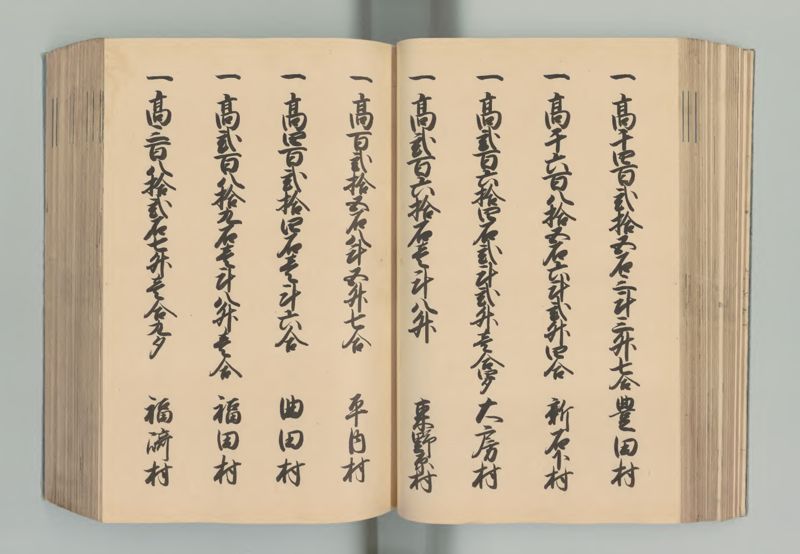 一高千四百弐拾五石三斗三升七合 豊田村
一高千六百八拾五石六斗弐升四合 新石下村
一高弐百六拾四石弐斗弐升壱合四夕 大房村
一高弐百六拾石壱斗八升 東野原村
一高百弐拾五石八斗五升七合 平内村
一高四百弐拾四石壱斗六合 曲田村
一高弐百八拾九石壱斗八升壱合 福田村
一高三百八拾弐石七升壱合九夕 福崎村